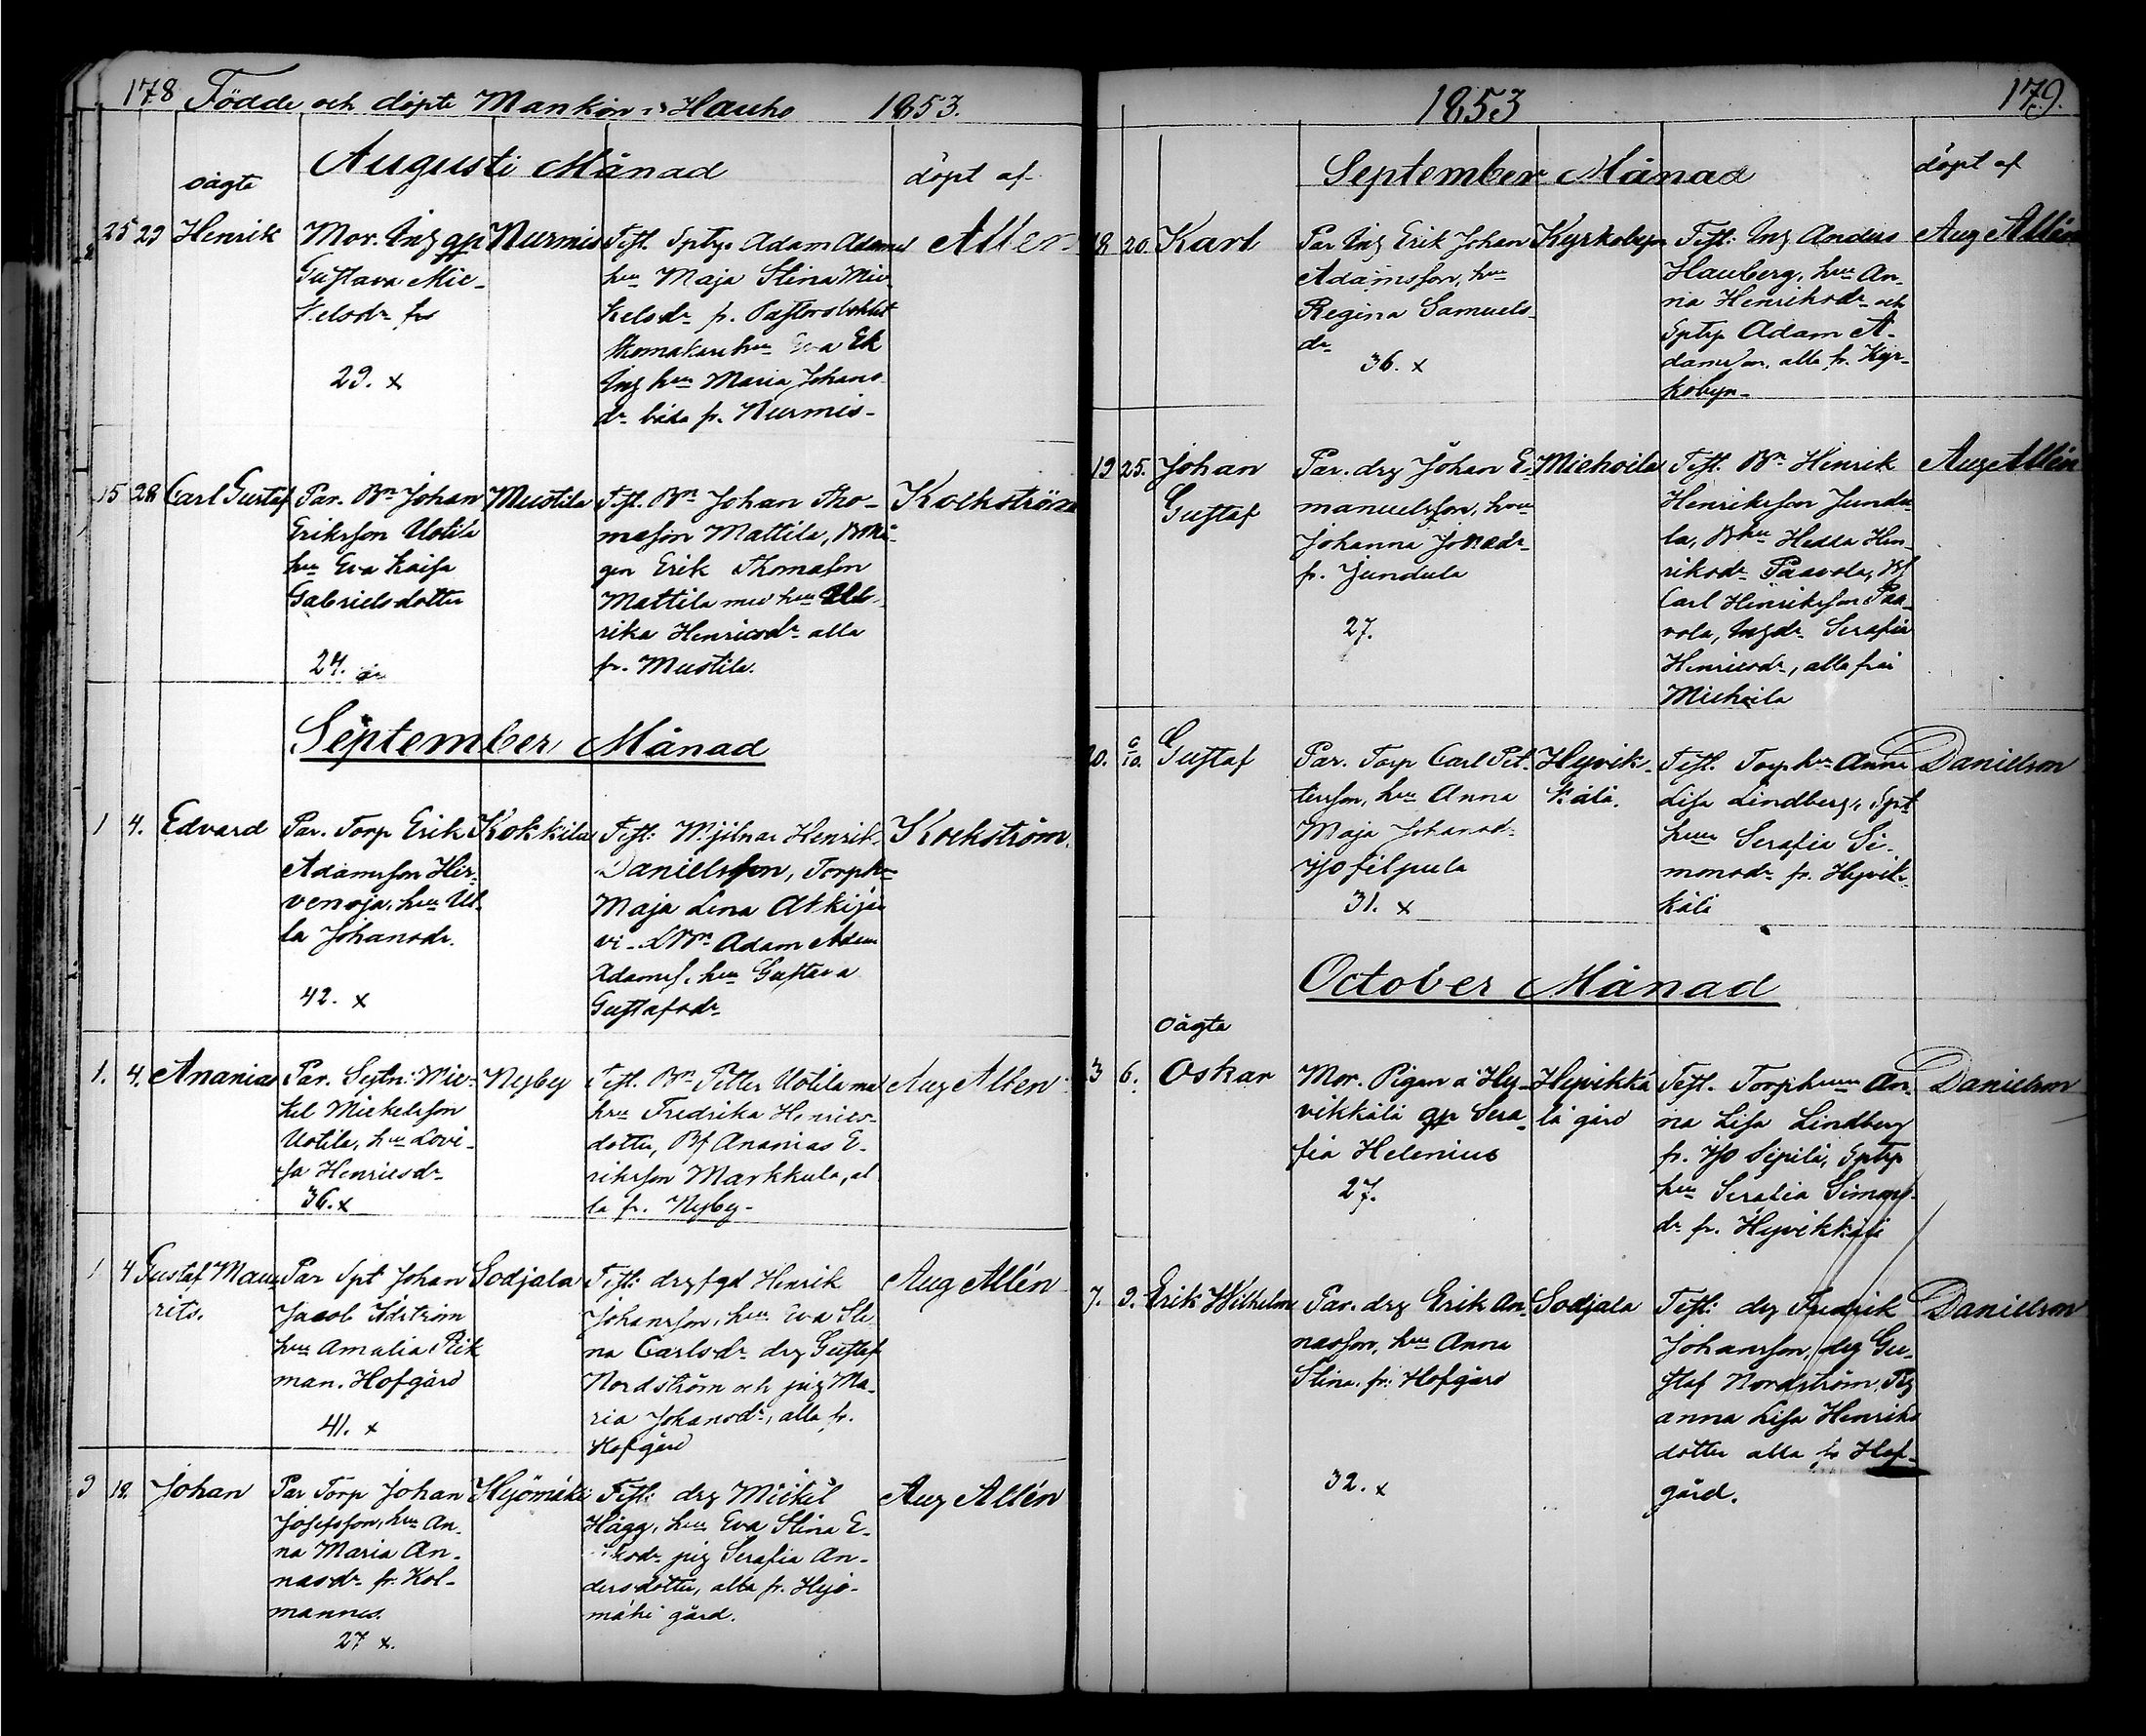 178 Födde och döpte Mankön i Hauho 1853.
Augusti Månad
oägta
döpt af
25 29 Henrik
Mor. Inh gp
Gustava Mic-
kelsdr frs
29. x
Nurmis
Test. Sptp. Adam Adams
hru Maja Stina Mic-
kelsdr fr. Pastorsbohlet
Skomakarehru Eva Ek
Inh hru Maria Johans-
dr båda fr. Nurmis-
Allén
15 28 Carl Gustaf
Par. Bn Johan
Eriksson Uotila
hru Eva Kaisa
Gabrielsdotter
24. år
Mustila
Test. Bn Johan Tho-
masson Mattila,
Erik Thomason
Mattila med hru Ul-
rika Henricsdr alla
fr. Mustila.
Kockström
September Månad
1 4. Edvard
Par. Torp Erik
Adamsson Hir-
venoja, hru Ul-
la Johansdr.
42. x
Kokkila
Test: Mjölnar Henrik
Danielsson, Torphru
Maja Lena
Adam
Adamss. hru Gustava
Gustafsdr
Kockström.
1. 4. Ananias
Par. Sytn: Mic-
kel Mickelsson
Uotila, hru Lovi-
sa Henricsdr
36. x
Nyby
Test. Bn Petter Uotila med
hru Fredrika Henrics-
dotter, Bf Ananias E-
riksson Markkula, al
la fr. Nyby-
Aug Allén
1 4 Gustaf Mau-
rits.
Par Spt Johan
Jacob
hru Amalia Rik
man. Hofgård
41. x
Sodjala
Test: drg fgd Henrik
Johansson, hru Eva Sti-
na Carlsdr drg Gustaf
Nordström och pig Ma-
ria Johansdr, alla fr.
Hofgård
Aug Allén
9 18. Johan
Par Torp Johan
Josefsson, hru An-
na Maria An-
nasdr fr. Kol-
mannes.
27 x.
Hyömäki
Test: drg Mickel
Hägg, hru Eva Stina E-
riksdr pig Serafia An-
dersdotter, alla fr. Hyö-
mäki gård.
Aug Allén
1853
179.
September Månad
döpt af
18 20. Karl
Par Inh Erik Johan
Adamsson, hru
Regina Samuels-
dr
36. x
Kyrkobyn
Test: Inh Anders
Hauberg, hru An-
na Henriksdr och
Sptp Adam A-
damsson, alla fr. Kyr-
kobyn-
Aug Allén
19 25. Johan
Gustaf
Par. drg Johan E-
manuelsson, hru
Johanna Jonasdr
fr. Jundula
27.
Miehoila
Test. Bn Henrik
Henriksson Junda-
la, Bhru Hedda Hen-
riksdr Paavola, Bf
Carl Henriksson Paa-
vola, Inhdr Serafia
Henricsdr, alla från
Miehoila
Aug Allén
20. 10. Gustaf
Par. Torp Carl Pet-
tersson, hru Anna
Maja Johansd-
31. x
Hyvik-
kälä.
Test. Torphru Anna
Lisa Lindberg, Spt
hru Serafia Si-
monsdr fr. Hyvik-
kälä
Danielson
October Månad
oägta
3 6. Oskar
Mor. Pigan å Hy-
vikkälä gp Sera-
fia Helenius
27.
Hyvikkä
lä gård
Test. Torphru An-
na Lisa Lindberg
fr. Iso Sipilä, Sptp
hru Serafia Simons-
dr fr. Hyvikkälä
Danielson
7. 9. Erik Wilhelm
Par. drg Erik An-
nasson, hru Anna
Stina. fr. Hofgård
32. x
Sodjala
Test: drg Fredrik
Johansson, drg Gu-
staf Nordström, Pig
Anna Lisa Henriks
dotter alla fr Hof-
gård.
Danielson